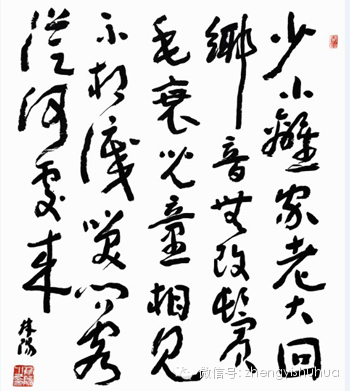 少小離家老大回
鄉音無改鬢
毛衰兒童相見
不相識笑問客
從何處來
微信号: zhengyishuhua